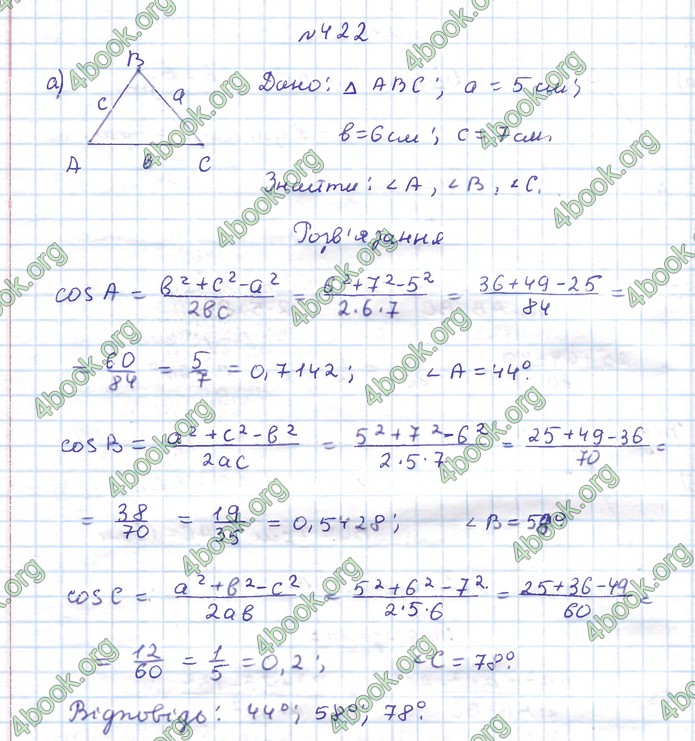 №422
a) B
c a
A в C
Дано: △ ABC; a = 5 см;
в = 6 см; c = 7 см.
Знайти: ∠A, ∠B, ∠C.
Розв'язання
cos A = (в² + c² - a²)/(2вc) = (6² + 7² - 5²)/(2·6·7) = (36 + 49 - 25)/84 =
= 60/84 = 5/7 = 0,7142; ∠A = 44°.
cos B = (a² + c² - в²)/(2ac) = (5² + 7² - 6²)/(2·5·7) = (25 + 49 - 36)/70 =
= 38/70 = 19/35 = 0,5428; ∠B = 58°
cos C = (a² + в² - c²)/(2aв) = (5² + 6² - 7²)/(2·5·6) = (25 + 36 - 49)/60 =
= 12/60 = 1/5 = 0,2; ∠C = 78°.
Відповідь: 44°; 58°; 78°.
4book.org